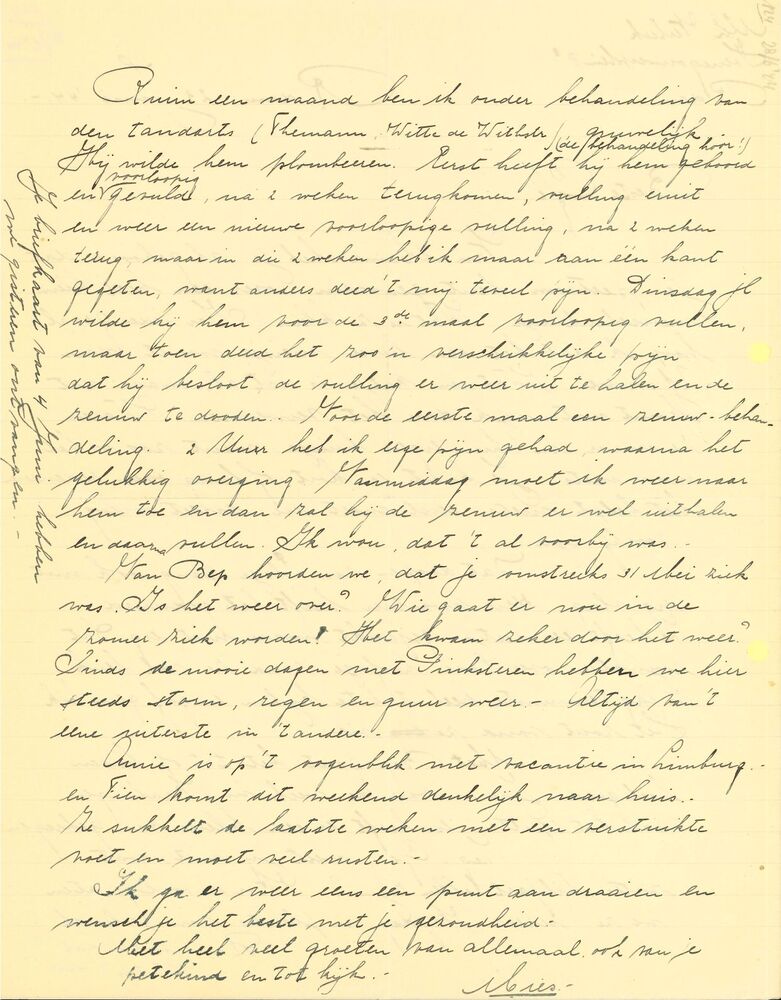 Ruim een maand ben ik onder behandeling van
den tandarts (Themann, Witte de Withstr) gruwelijk
(de behandeling hoor!)
Hij wilde hem plombeeren. Eerst heeft hij hem geboord
voorloopig
en gevuld, na 2 weken terugkomen, vulling eruit
en weer een nieuwe voorloopige vulling, na 2 weken
terug, maar in die 2 weken heb ik maar aan één kant
gegeten, want anders deed 't mij teveel pijn. Dinsdag jl
wilde hij hem voor de 3de maal voorloopig vullen,
maar toen deed het zoo'n verschrikkelijke pijn
dat hij besloot, de vulling er weer uit te halen en de
zenuw te dooden.. Voor de eerste maal een zenuw-behan-
deling. 2 Uur heb ik erge pijn gehad, waarna het
gelukkig overging. Vanmiddag moet ik weer naar
hem toe en dan zal hij de zenuw er wel uithalen
en daarna vullen. Ik wou, dat 't al voorbij was. -
Van Bep hoorden we, dat je omstreeks 31 Mei ziek
was. Is het weer over? Wie gaat er nou in de
zomer ziek worden! Het kwam zeker door het weer?
Sinds de mooie dagen met Pinksteren hebben we hier
steeds storm, regen en guur weer. - Altijd van 't
eene uiterste in 't andere. -
Annie is op 't oogenblik met vacantie in Limburg. -
en Fien komt dit weekend denkelijk naar huis. -
Ze sukkelt de laatste weken met een verstuikte
voet en moet veel rusten. -
Ik ga er weer eens een punt aan draaien en
wensch je het beste met je gezondheid. -
Met heel veel groeten van allemaal, ook van je
petekind en tot kijk. -
Mies. -
Je briefkaart van 4 Juni hebben
we gisteren ontvangen. -